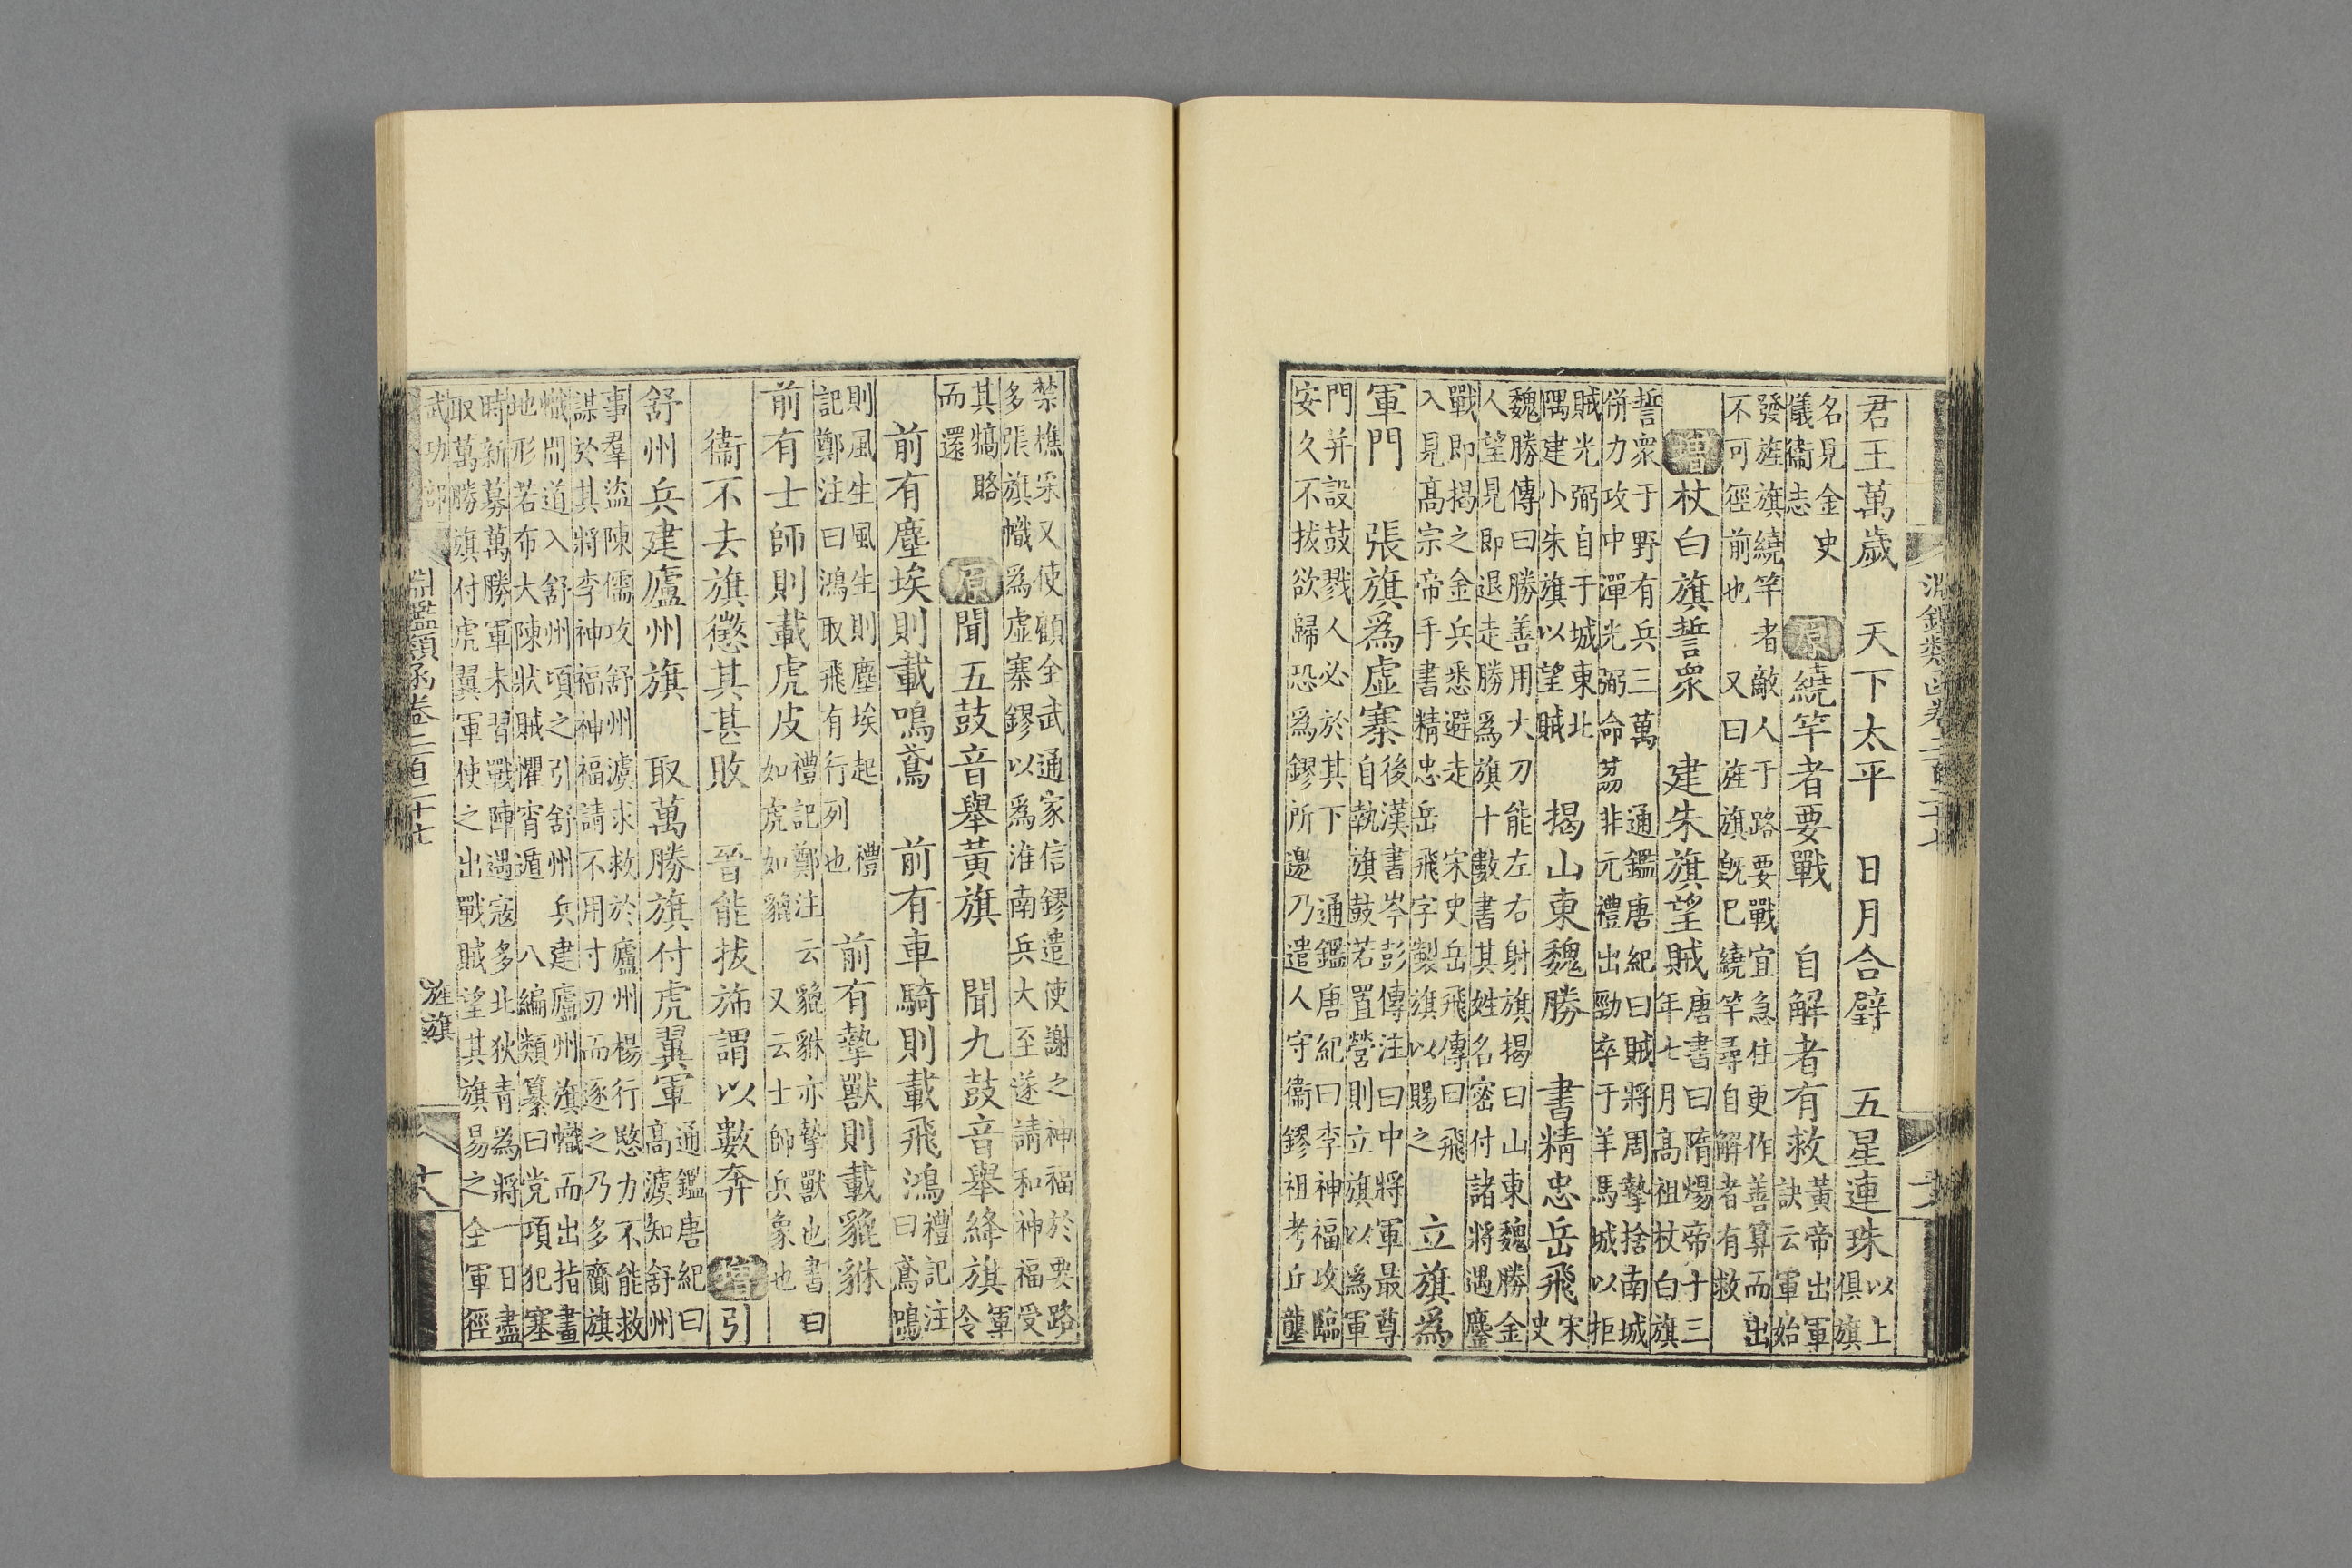 君王萬歲　天下太平　日月合璧　五星連珠以上俱旗
名見金史儀衛志　原　繞竿者要戰　自解者有救黃帝出軍訣云軍始
發旌旗繞竿者敵人于路要戰宜急住更作善算而出不可徑前也又曰旌旗旣已繞竿尋自解者有救
增　杖白旗誓衆　建朱旗望賊唐書曰隋煬帝十三年七月高祖杖白旗
誓衆于野有兵三萬併力攻中潬光弼命荔非元禮出勁卒于羊馬城以拒
通鑑唐紀曰賊將周摯捨南城
賊光弼自于城東北隅建小朱旗以望賊　揭山東魏勝　書精忠岳飛宋史
魏勝傳曰勝善用大刀能左右射旗揭曰山東魏勝金人望見即退走勝爲旗十數書其姓名密付諸將遇鏖
戰即揭之金兵悉避走　宋史岳飛傳曰飛入見高宗帝手書精忠岳飛字製旗以賜之　立旗爲
軍門　張旗爲虛寨後漢書岑彭傳注曰中將軍最尊自執旗鼓若置營則立旗以爲軍
門并設鼓戮人必於其下　通鑑唐紀曰李神福攻臨安久不拔欲歸恐爲鏐所邀乃遣人守衛鏐祖考丘壟
禁樵采又使顧全武通家信鏐遣使謝之神福於要路多張旗幟爲虛寨鏐以爲淮南兵大至遂請和神福受
其犒賂而還　原　聞五鼓音舉黃旗　聞九鼓音舉絳旗軍令
前有塵埃則載鳴鳶　前有車騎則載飛鴻禮記注曰鳶鳴
則風生風生則塵埃起　禮記鄭注曰鴻取飛有行列也　前有摯獸則載貔貅
前有士師則載虎皮禮記鄭注云貔貅亦摯獸也書曰如虎如貔　又云士師兵象也
衞不去旗懲其甚敗　晉能拔旆謂以數奔　增　引
舒州兵建廬州旗　取萬勝旗付虎翼軍通鑑唐紀曰高澞知舒州
事羣盜陳儒攻舒州澞求救於廬州楊行愍力不能救謀於其將李神福神福請不用寸刃而逐之乃多齎旗
幟間道入舒州頃之引舒州兵建廬州旗幟而出指畫地形若布大陳狀賊懼宵遁　八編類纂曰党項犯塞
時新募萬勝軍未習戰陣遇寇多北狄青為將一日盡取萬勝旗付虎翼軍使之出戰賊望其旗易之全軍徑
淵鑑類函卷二百二十七　旌旗